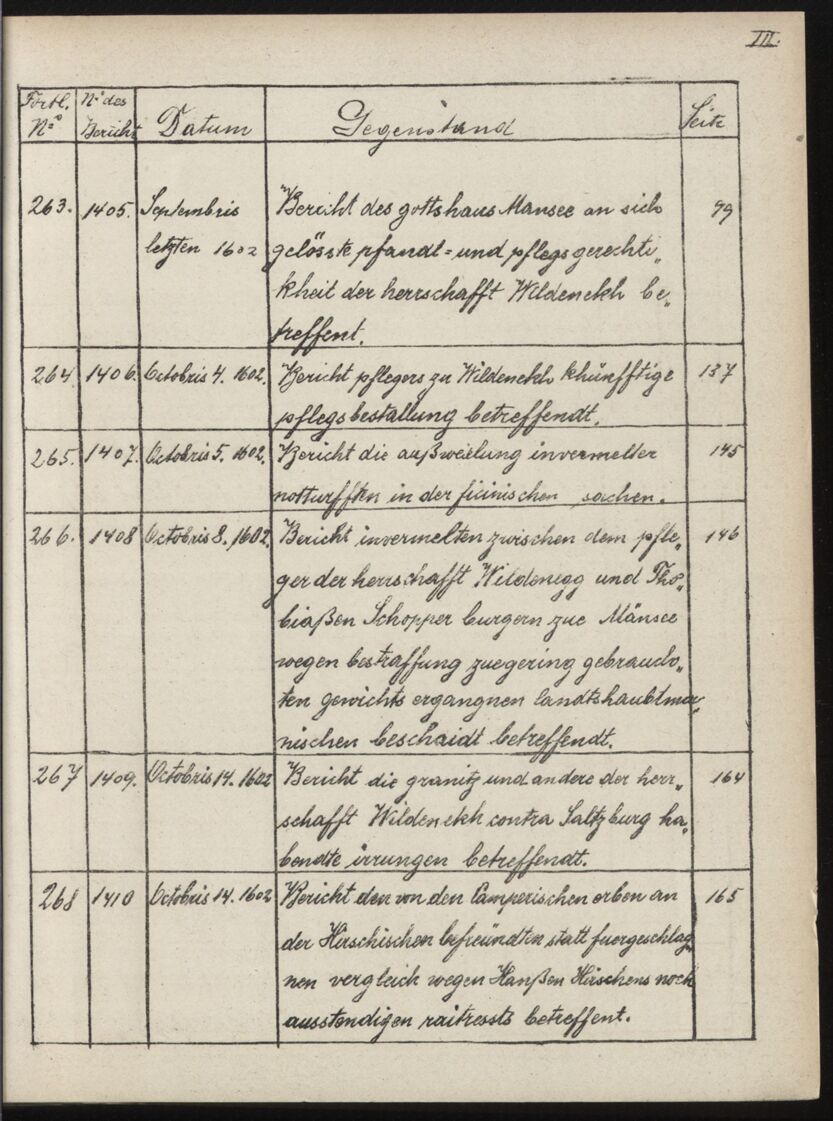 III.
Fortl. N° N° des Bericht Datum Gegenstand Seite
263. 1405. Septembris Bericht des gottshaus Mansee an sich 79
letzten 1602 gelösste pfandt= und pflegsgerechti„
kheit der herrschafft Wildenekh be„
treffent.
264. 1406. Octobris 4. 1602. Bericht pflegers zu Wildenekh khünfftige 137
pflegsbestallung betreffendt.
265. 1407. Octobris 5. 1602. Bericht die außweisung invermelter 145
notturfften in der ficinischen sachen.
266. 1408 Octobris 8. 1602. Bericht invermelten zwischen dem pfle„ 146
ger der herrschafft Wildenegg und Tho„
biaßen Schopper burgern zue Mänsee
wegen bestraffung zuegering gebrauch„
ten gewichts ergangnen landtshaubtma„
nischen beschaidt betreffendt.
267 1409. Octobris 14. 1602 Bericht die granitz und andere der herr„ 164
schafft Wildenekh contra Saltzburg ha„
bendte irrungen betreffendt.
268 1410 Octobris 14. 1602 Bericht den von den Camperischen erben an 165
der Hirschischen befreündten statt fuergeschlag„
nen vergleich wegen Hanßen Hirschens noch
ausstendigen raitressts betreffent.